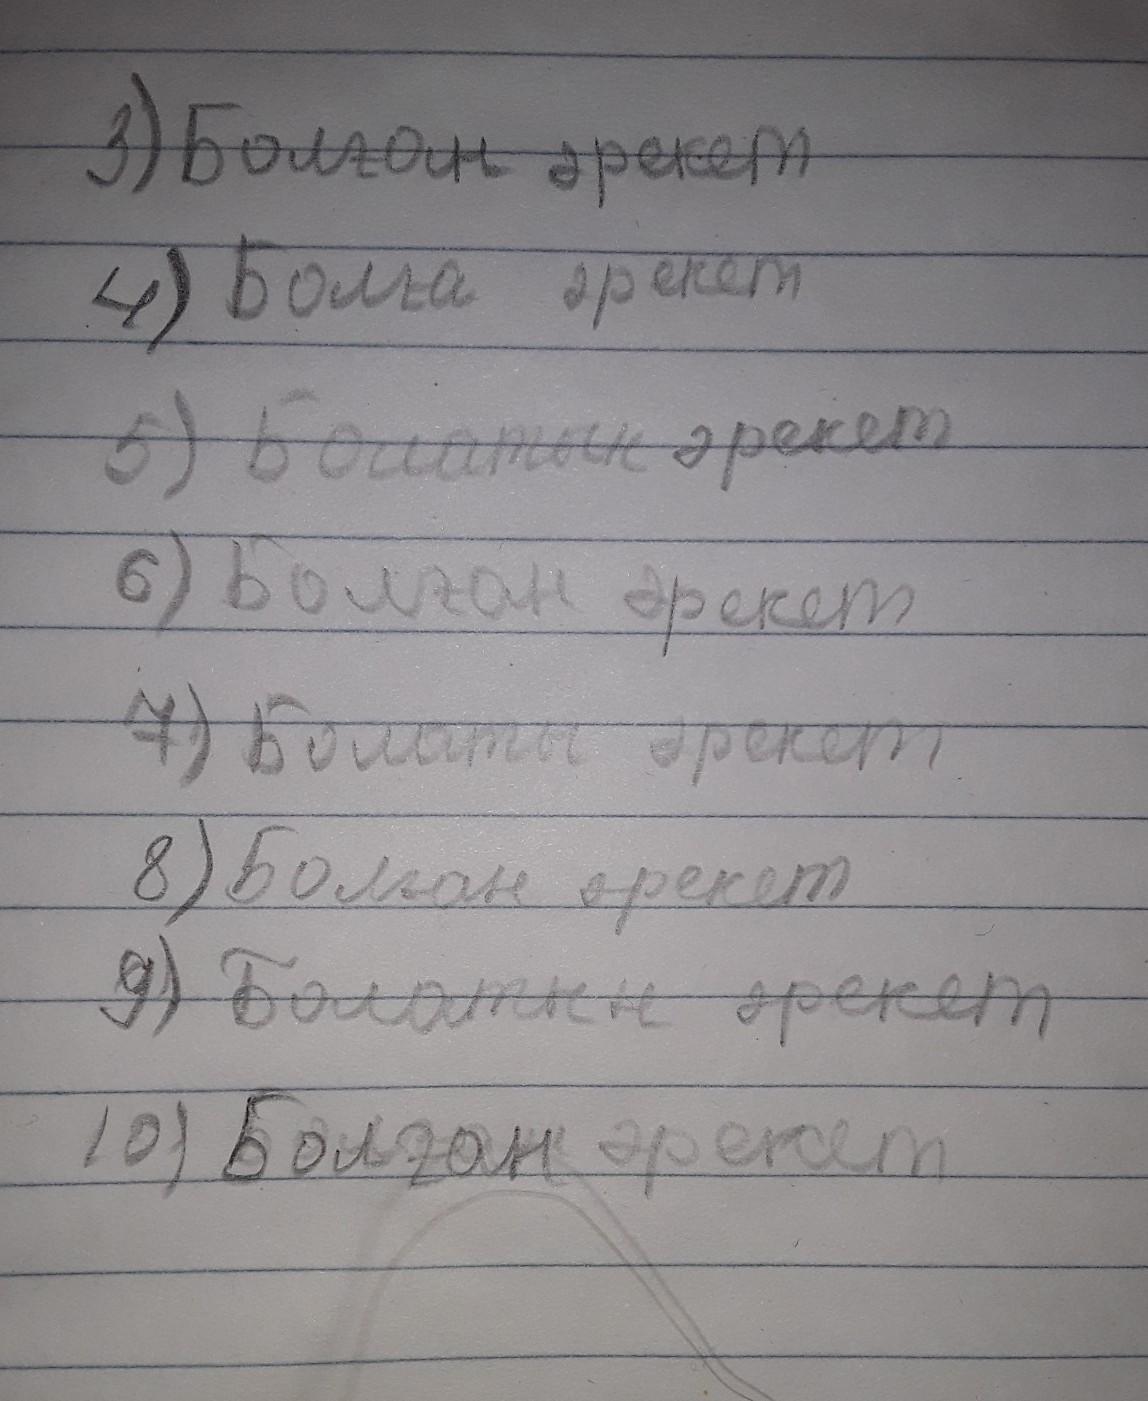 3) Болған әрекет
4) Болға әрекет
5) Болатын әрекет
6) Болған әрекет
7) Болаты әрекет
8) Болған әрекет
9) Болатын әрекет
10) Болған әрекет